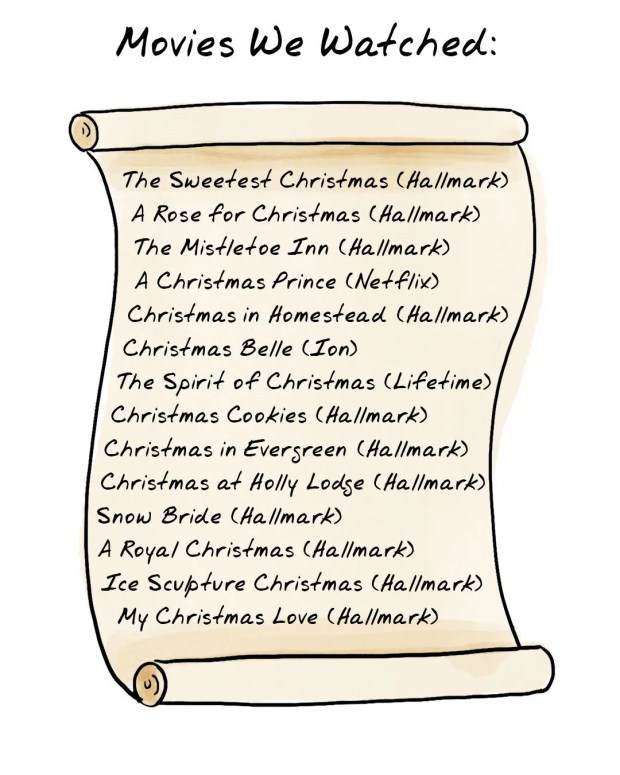 Movies We Watched:
The Sweetest Christmas (Hallmark)
A Rose for Christmas (Hallmark)
The Mistletoe Inn (Hallmark)
A Christmas Prince (Netflix)
Christmas in Homestead (Hallmark)
Christmas Belle (Ion)
The Spirit of Christmas (Lifetime)
Christmas Cookies (Hallmark)
Christmas in Evergreen (Hallmark)
Christmas at Holly Lodge (Hallmark)
Snow Bride (Hallmark)
A Royal Christmas (Hallmark)
Ice Sculpture Christmas (Hallmark)
My Christmas Love (Hallmark)